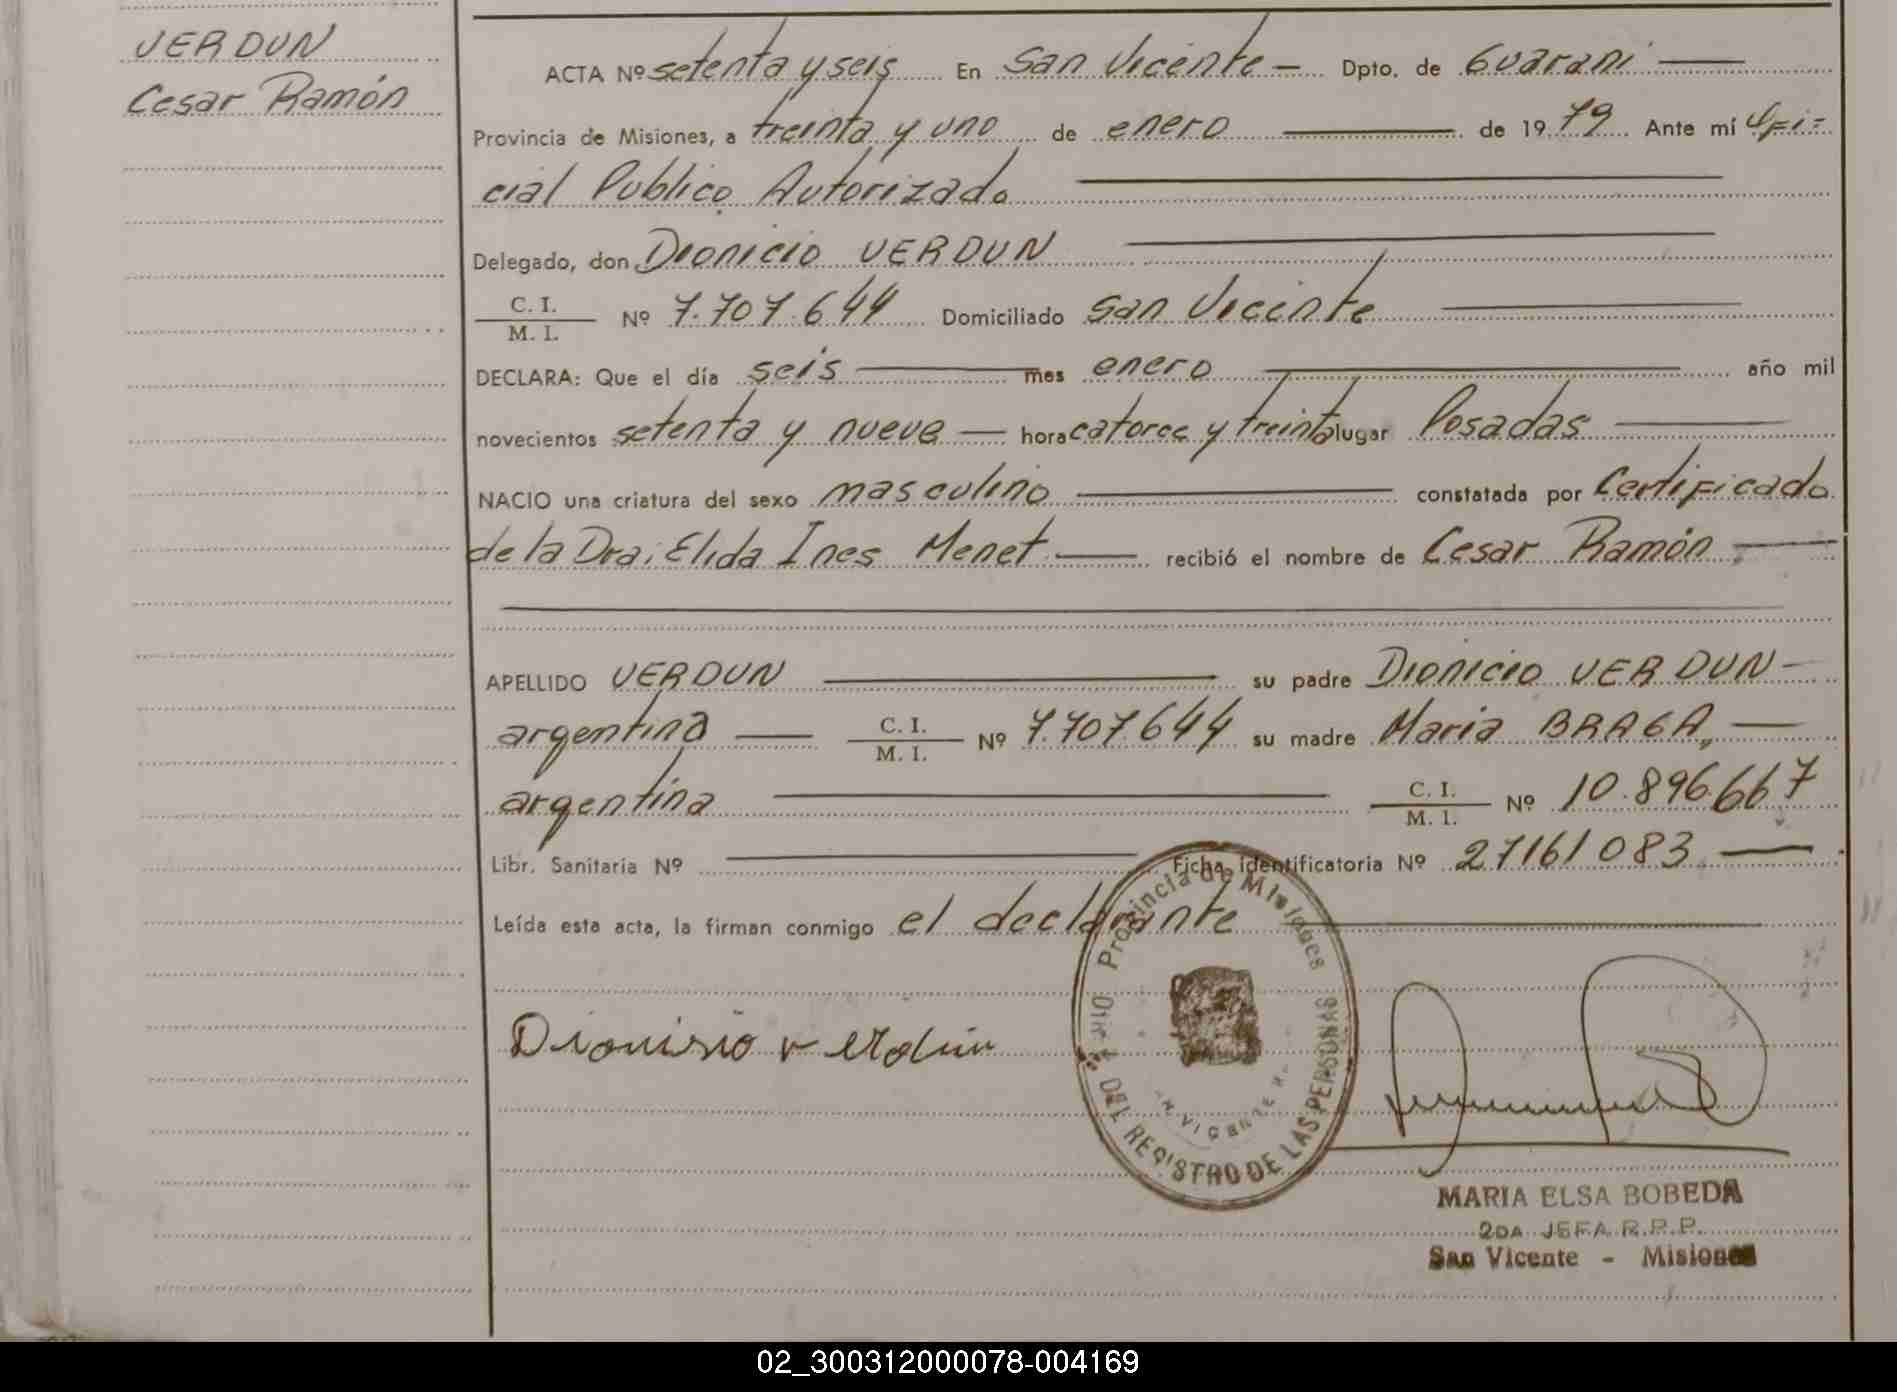 VERDUN
Cesar Ramón
ACTA Nº setenta y seis En San Vicente — Dpto. de Guarani —
Provincia de Misiones, a treinta y uno de enero — de 1979 Ante mí Ofi=
cial Publico Autorizado
Delegado, don Dionicio VERDUN
C. I.
M. I. Nº 7.707.644 Domiciliado San Vicente
DECLARA: Que el día seis — mes enero — año mil
novecientos setenta y nueve — hora catorce y treinta lugar Posadas —
NACIO una criatura del sexo masculino — constatada por Certificado
de la Dra. Elida Ines Menet — recibió el nombre de Cesar Ramón —
APELLIDO VERDUN — su padre Dionicio VERDUN —
argentina — C. I.
M. I. Nº 7.707.644 su madre Maria BRAGA, —
argentina — C. I.
M. I. Nº 10.896.667
Libr. Sanitaria Nº — Ficha identificatoria Nº 27161083 —
Leída esta acta, la firman conmigo el declarante —
Provincia de Misiones
DIR. DEL REGISTRO DE LAS PERSONAS
VICENTE
Dionisio verdun
MARIA ELSA BOBEDA
2DA JEFA R.P.P.
San Vicente - Misiones
02_300312000078-004169